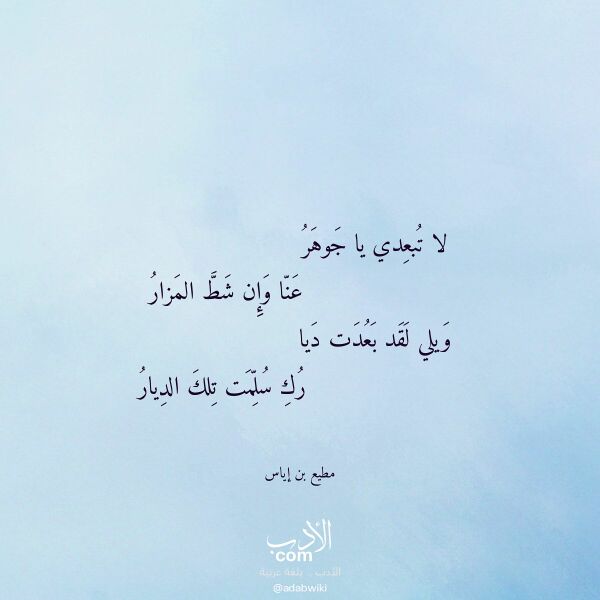 لا تُبعِدي يا جَوهَرُ
عَنّا وَإِن شَطَّ المَزارُ
وَيلي لَقَد بَعُدَت دَيا
رُكِ سُلِّمَت تِلكَ الدِيارُ
مطيع بن إياس
الأدب
com
الأدب .. بلغة عربية
@adabwiki